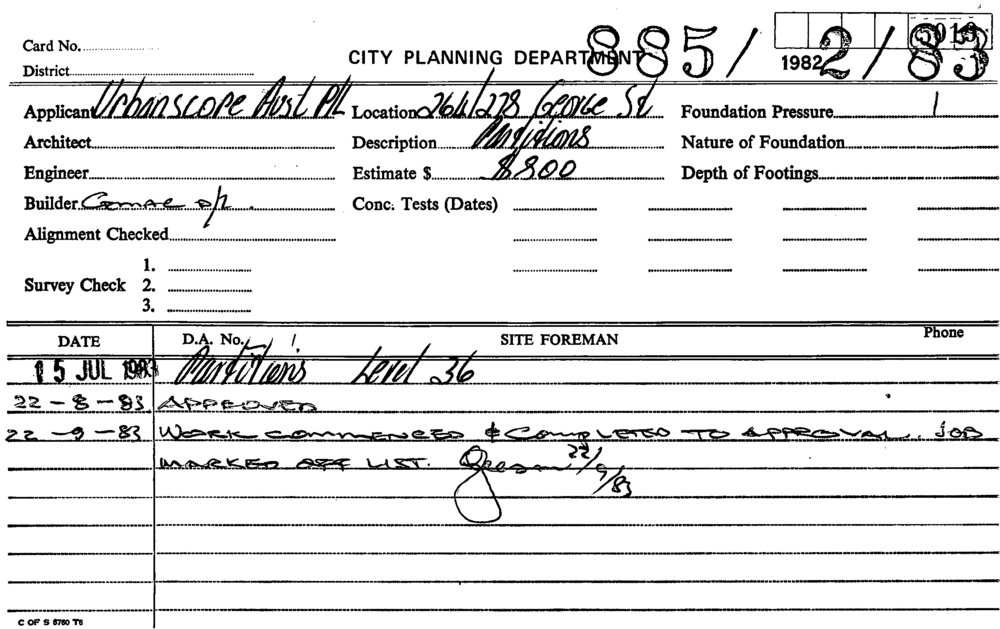 Card No.
CITY PLANNING DEPARTMENT 885/2/83
1982
District
Applicant Urbanscope Aust P/L Location 264/278 George St Foundation Pressure
Architect Description Partitions Nature of Foundation
Engineer Estimate $ $800 Depth of Footings
Builder p/l. Conc. Tests (Dates)
Alignment Checked
1.
Survey Check 2.
3.
DATE D.A. No. SITE FOREMAN Phone
15 JUL 1983 Partitions Level 36
22-8-83 APPROVED
22-9-83 WORK COMMENCED & COMPLETED TO APPROVAL. JOB
MARKED OFF LIST. 22/9/83
C OF S 6760 T6